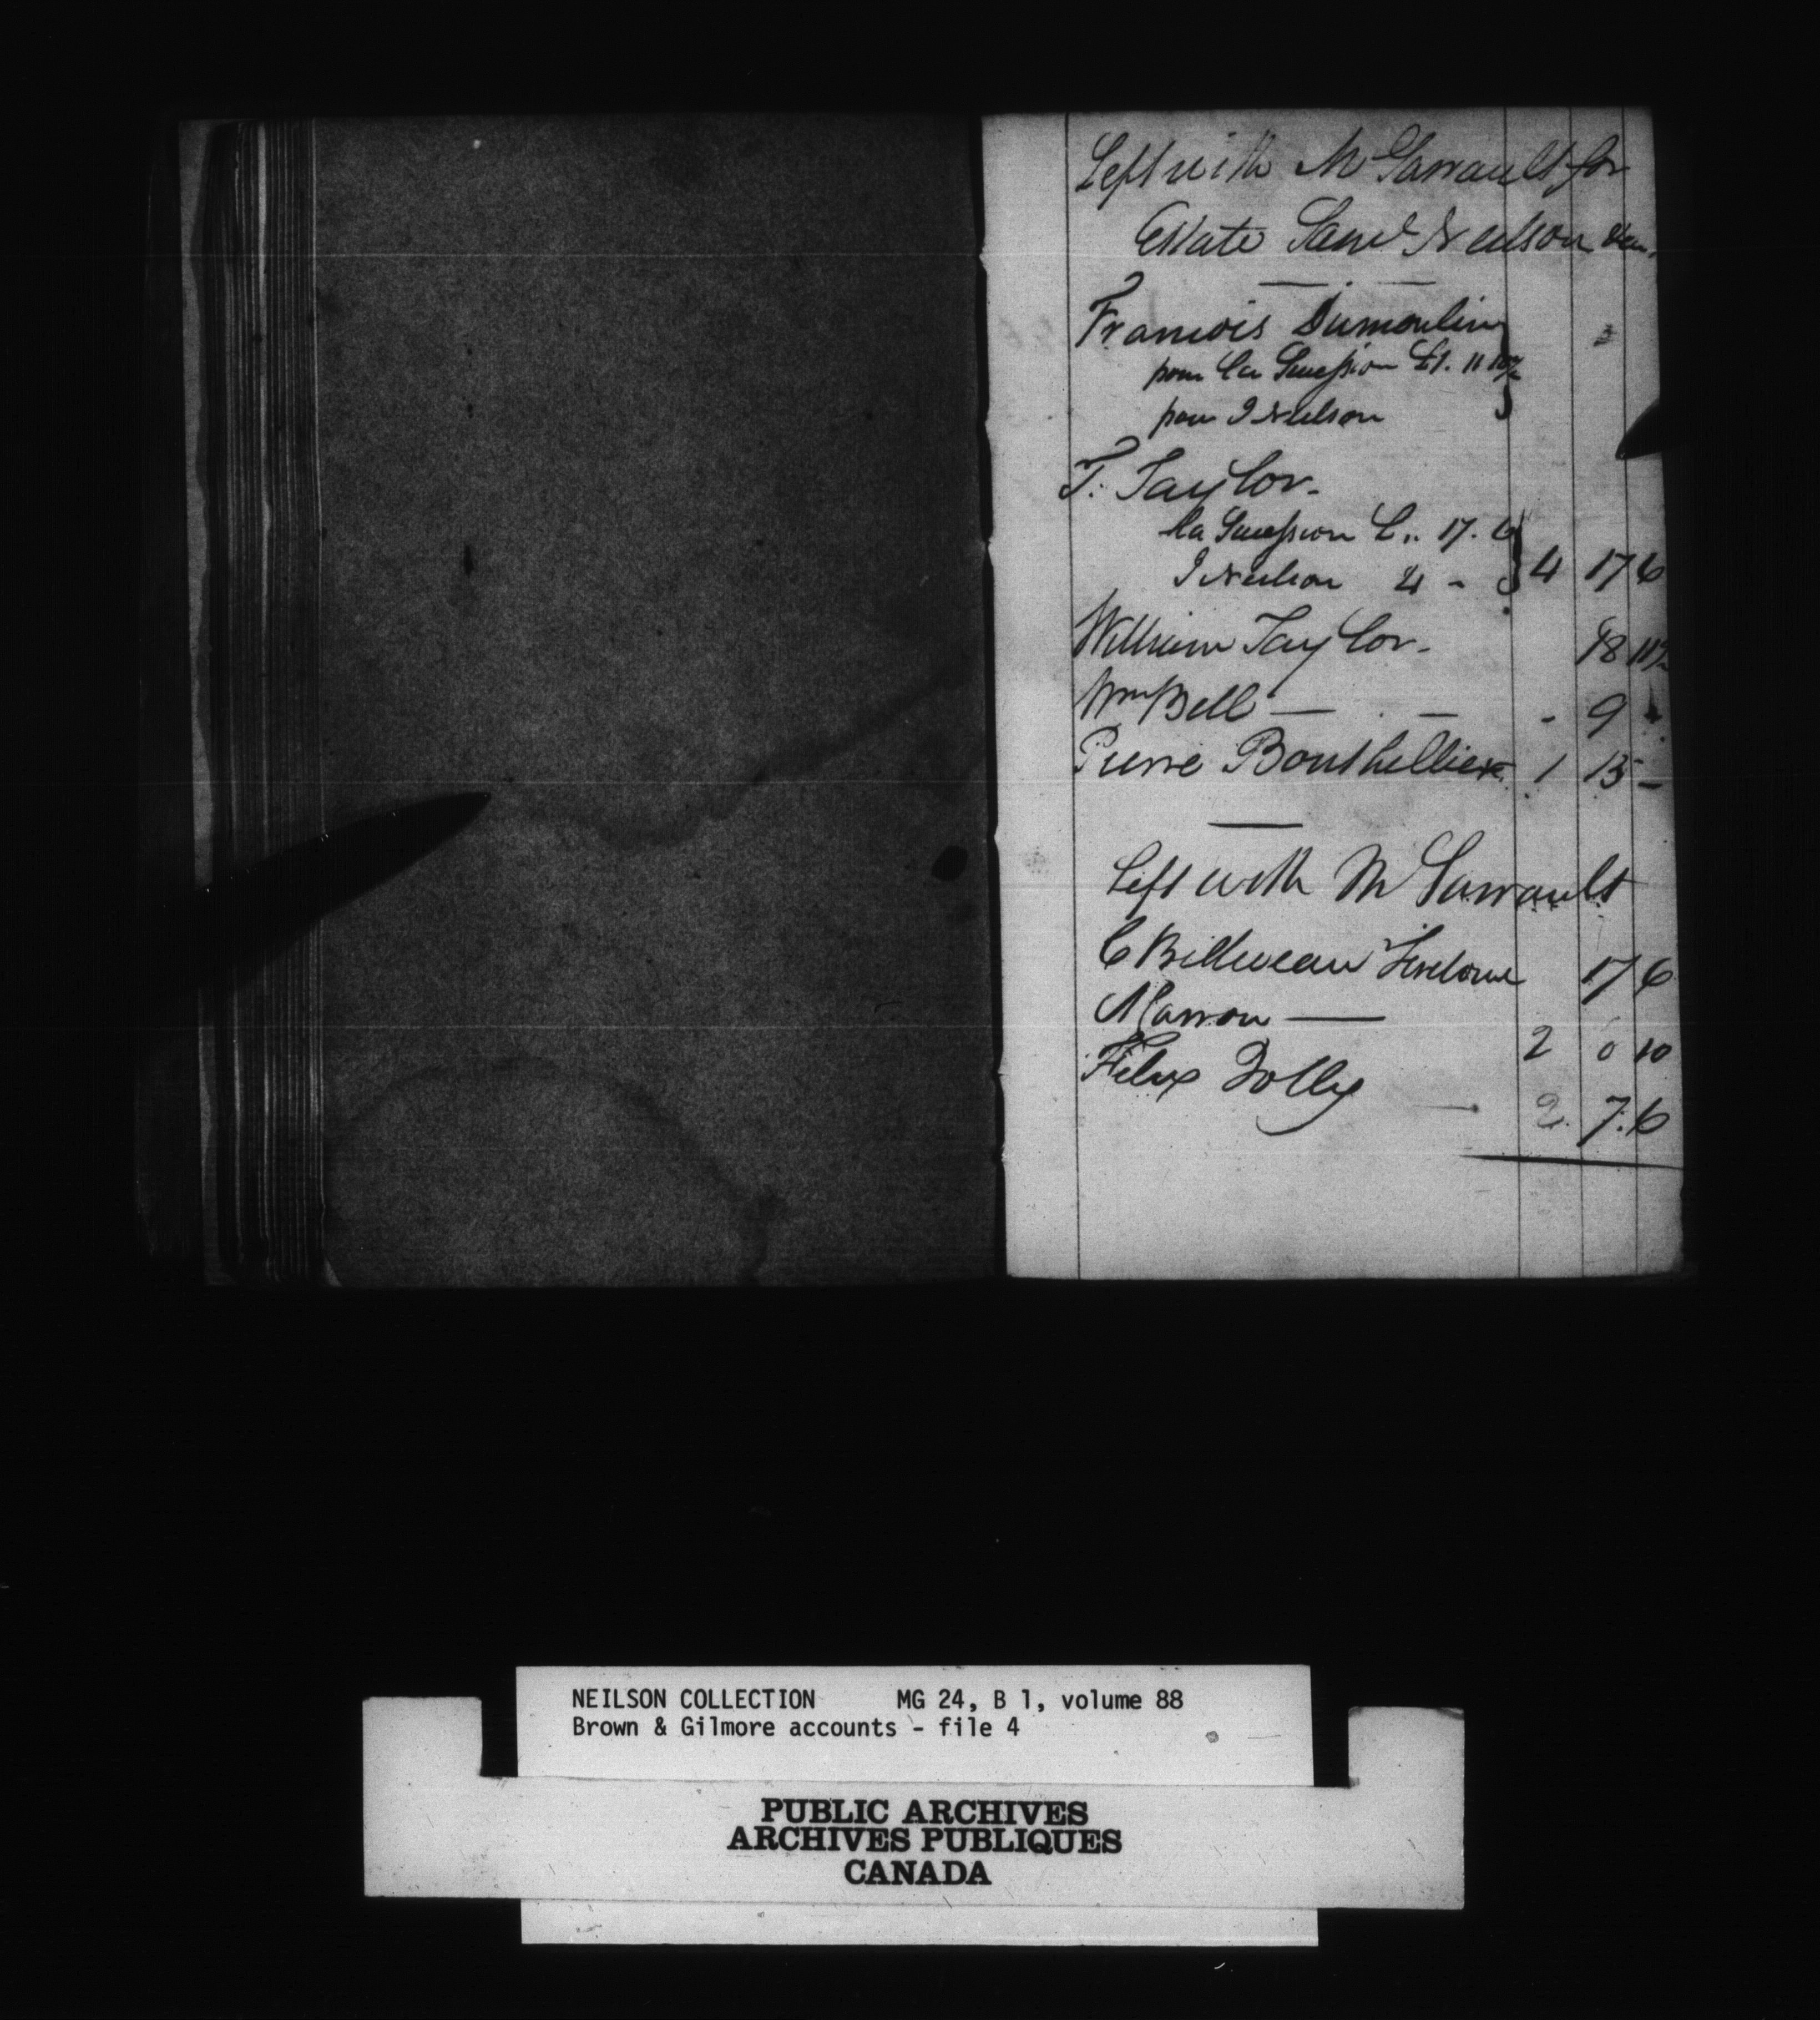 Left with Mr Sarrault for
Estate Saml Neilson
Francois Dumoulin
pour La Succession £1. 11 10½
pour J Neilson
T. Taylor.
La Succession £ " 17. 6
J Neilson 4 - 4 17 6
William Taylor. 18 11½
Wm Bell — . — - 9
Pierre Bouthellier 1 15 -
Left with Mr Sarrault
C Billuveau 17 6
Marrow — 2 0 10
Felix Dolly 2. 7. 6
NEILSON COLLECTION MG 24, B 1, volume 88
Brown & Gilmore accounts - file 4
PUBLIC ARCHIVES
ARCHIVES PUBLIQUES
CANADA